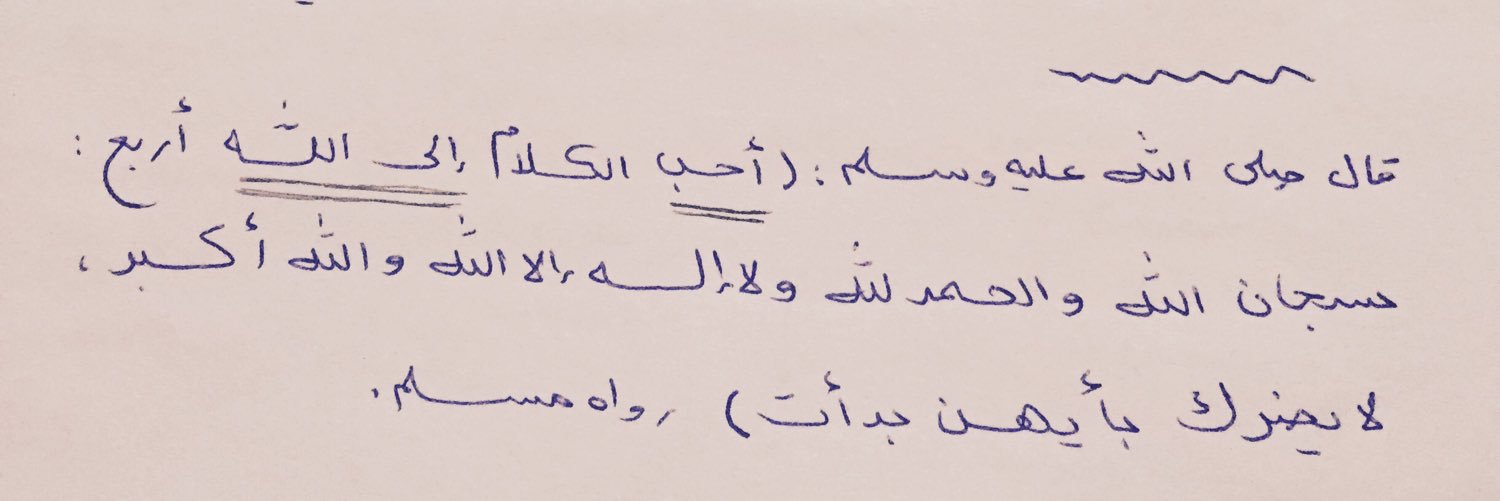 قال صلى الله عليه وسلم : (أحب الكلام إلى الله أربع :
سبحان الله والحمد لله ولا إله إلا الله والله أكبر ،
لا يضرك بأيهن بدأت) رواه مسلم .